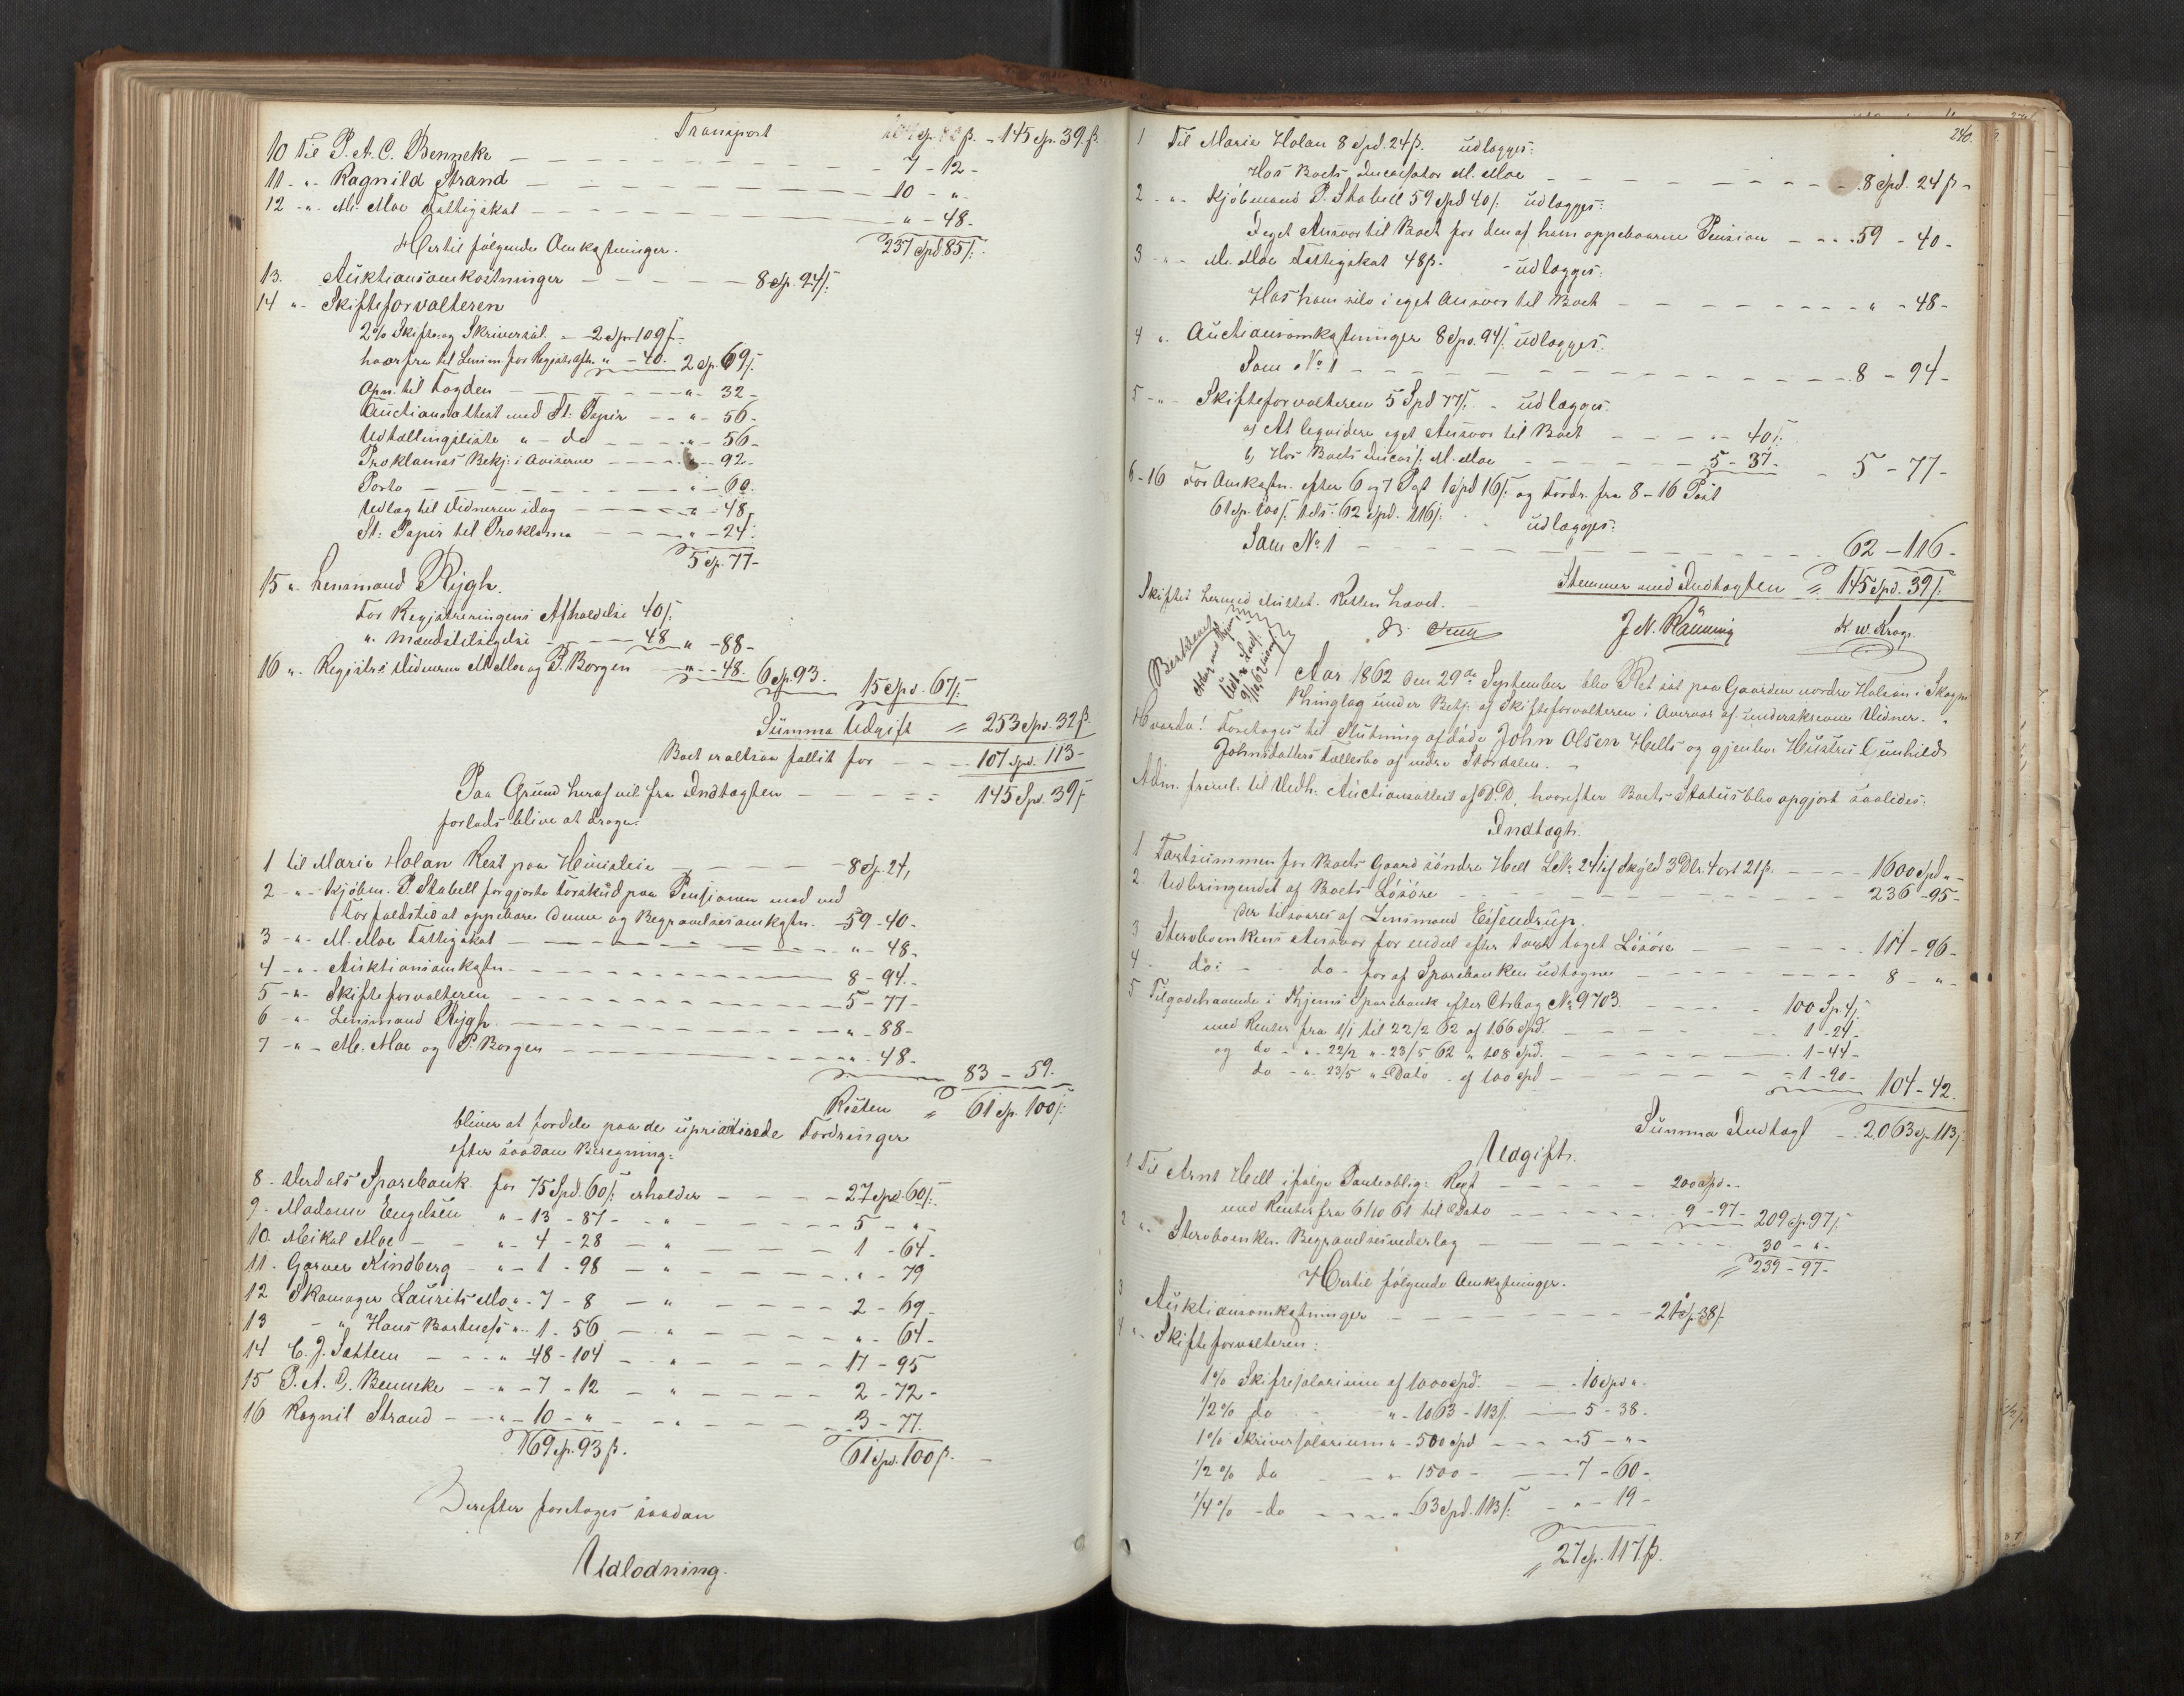 Transport 145 Sp. 39 ß.
10 Til P. A. C. Benneke — 7 - 12 -
11 - " - Ragnild Strand — 10 - " -
12 - " - M. Moe Fattigskat — " - 48 -
237 Spd. 85 ß.
Hertil følgende Omkostninger.
13. Auktionsomkostninger — 8 Sp. 94 ß.
14 " - Skifteforvalteren
2% Skifte og Skriversal. - 2 Sp. 109 ß.
hvorfra til Lensm. for Registr. Afh. " - 40. 2 Sp. 69 ß.
Opn. til Fogden — " - 32 -
Auctionsattest med St: Papir — " - 56 -
Udtællingsliste " - do — " - 56 -
Proklamas Bekj: i Aviserne — " - 92 -
Porto — " - 60.
Udlæg til Vidnerne idag — " - 48 ß
St: Papir til Proklama — " - 24.
5 Sp. 77 -
15 " - Lensmand Rygh.
For Registreringens Afholdelse 40 ß.
" - Mændstilsigelse — 48 " - 88 -
16 " - Registr: Vidnerne M. Moe og P. Borgen — " - 48. 6 Sp. 93. 15 Spd. 67 ß.
Summa Udgift = 253 Spd. 32 ß.
Boet er altsaa fallit for — 107 Spd. 113 -
Paa Grund heraf vil fra Indtægten — 145 Spd. 39 ß
forlods blive at drage:
1 til Marie Holan Rest paa Huusleie — 8 Sp. 24,
2 - " - Kjøbm. P. Stabell forgjorte Forskud paa Pensionen mod ved
Forfaldstid at oppebære denne og Begravelsesomkostn. - 59 - 40 -
3 - " - M. Moe Fattigskat — " - 48 -
4 - " - Auktionsomkostn. — 8 - 94 -
5 - " - Skifteforvalteren — 5 - 77 -
6 - " - Lensmand Rygh — " - 88 -
7 - " - M. Moe og P. Borgen — " - 48 -
83 - 59.
Resten = 61 Sp. 100 ß:
bliver at fordele paa de upriviterede Fordringer
efter saadan Beregning:
8 - Verdals Sparebank for 75 Spd. 60 ß. erholder — 27 Spd. 60 ß.
9 - Madame Engelsen " - 13 - 87 - " — 5 - " -
10. Mikal Moe — " - 4 - 28 — " — 1 - 64 -
11 - Garver Kindberg " - 1 - 98 — " — " - 79
12 Skomager Laurits Mo " - 7 - 8 — " — 2 - 69 -
13 - " Hans " - 1 - 56 — " — " - 64 -
14 C. J. Sattem — " 48 - 104 — " — 17 - 95
15 P. A. C. Benneke — " - 7 - 12 — " — 2 - 72 -
16 Ragnil Strand — " - 10 - " — " — 3 - 77.
169 Sp. 93 ß. 61 Spd. 100 ß.
Derefter foretoges saadan
Udlodning.
240.
1 Til Marie Holan 8 Spd. 24 ß. udlægges:
Hos Boets Incassator M. Moe — 8 Spd. 24 ß -
2 - " - Kjøbmand P. Stabell 59 Spd 40 ß. udlægges:
I eget Ansvar til Boet for den af ham oppebaarne Pension — 59 - 40 -
3 - " - M. Moe Fattigskat 48 ß. - udlægges:
Hos ham selv i eget Ansvar til Boet — " - 48 -
4 " - Auctionsomkostninger 8 Spd. 94 ß. udlægges:
Som No 1 — 8 - 94 -
5 - " - Skifteforvalteren 5 Spd 77 ß. - udlægges:
a, At liqvidere eget Ansvar til Boet — 40 ß.
b, Hos Boets Incass: M. Moe — 5 - 37 - 5 - 77 -
6 - 16 For Omkostn. efter 6 og 7 Post 1 Spd 16 ß. og Fordr. fra 8 - 16 Post
61 Sp. 100 ß. tils: 62 Spd. 116 ß. - udlægges:
Som No 1 — 62 - 116 -
Stemmer med Indtægten = 145 Spd. 39 ß.
Skiftet hermed sluttet. Retten hævet.
J. N. Rönning K. W. Krog.
Aar 1862 den 29de September blev Ret sat paa Gaarden nordre Holan i Skogn
Thinglag under Betj: af Skifteforvalteren i Overvær af underskrevne Vidner.
Hvorda! Foretoges til Slutning afdøde John Olsen Hells og gjenlev. Hustru Gunhild
Johnsdatters Fællesbo af nedre Stordalen. -
Adm. freml. til Vedh. Auctionsattest af D. D, hvorefter Boets Status blev opgjort saaledes:
Indtægt.
1 Kjøbsummen for Boets Gaard søndre Hell LNo 241 af Skyld 3 Dlr. 4 ort 21 ß. — 1600 Spd " -
2. Udbringendet af Boets Løsøre — 236 - 95 -
der tilsvares af Lensmand Essendrup.
3 Sterboenkens Ansvar for endel efter taget Løsøre — 114 - 96 -
4 - do: - do - for af Sparebanken udtagne — 8 - " -
5 Tilgodehavende i Hjems Sparebank efter Ctrbog No 9703. — 100 Sp. 4 ß
med Renter fra 1/1 til 22/2 62 af 166 Spd. — 1 - 24 -
og do - " - 22/2 " - 23/5 62 " 108 Spd. — 1 - 44 -
do - " - 23/5 " - Dato - af 100 Spd — 1 - 90 - 104 - 42.
Summa Indtægt - 2063 Sp 113 ß.
Udgift.
1 Til Arnt Hell ifølge Panteoblig: Rest — 200 Spd " -
med Renter fra 6/10 61 til Dato — 9 - 97 - 209 Sp. 97 ß.
2 " - Sterboenken Begravelsesvederlag — 30 - " -
239 - 97 -
Hertil følgende Omkostninger.
3 Auktionsomkostninger — 21 Sp. 38 ß.
4 " - Skifteforvalteren:
1% Skiftesalarium af 1000 Spd. — 10 Spd " -
1/2% do " - 1063 - 113 ß. — 5 - 38 -
1% Skriversalarium " - 500 Spd — 5 - " -
1/2% do " - 1500 - — 7 - 60 -
1/4% - do — 63 Spd. 113 ß. — " - 19 -
27 Sp. 117 ß.